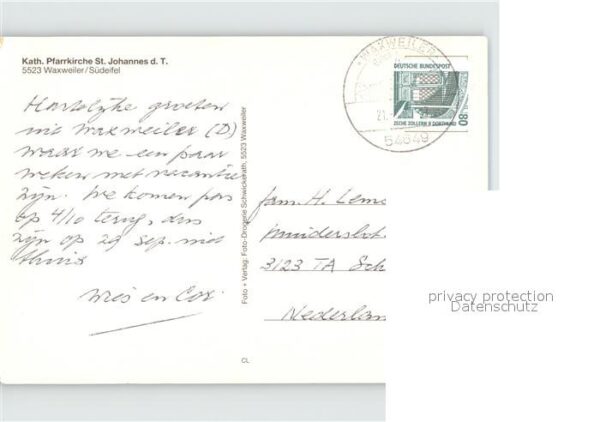 Kath. Pfarrkirche St. Johannes d. T.
5523 Waxweiler/Südeifel
Hartelijke groeten
uit Waxweiler (D)
waar we een paar
weken met vacantie
zijn. We komen pas
op 4/10 terug, dus
zijn op 29 sep. niet
thuis
Wies en Cor.
Foto + Verlag: Foto-Drogerie Schwickerath, 5523 Waxweiler
CL
WAXWEILER
DEUTSCHE BUNDESPOST
80
21.
ZECHE ZOLLERN II DORTMUND
54649
fam. H. Lems
3123 TA Sch
Nederlan
privacy protection
Datenschutz